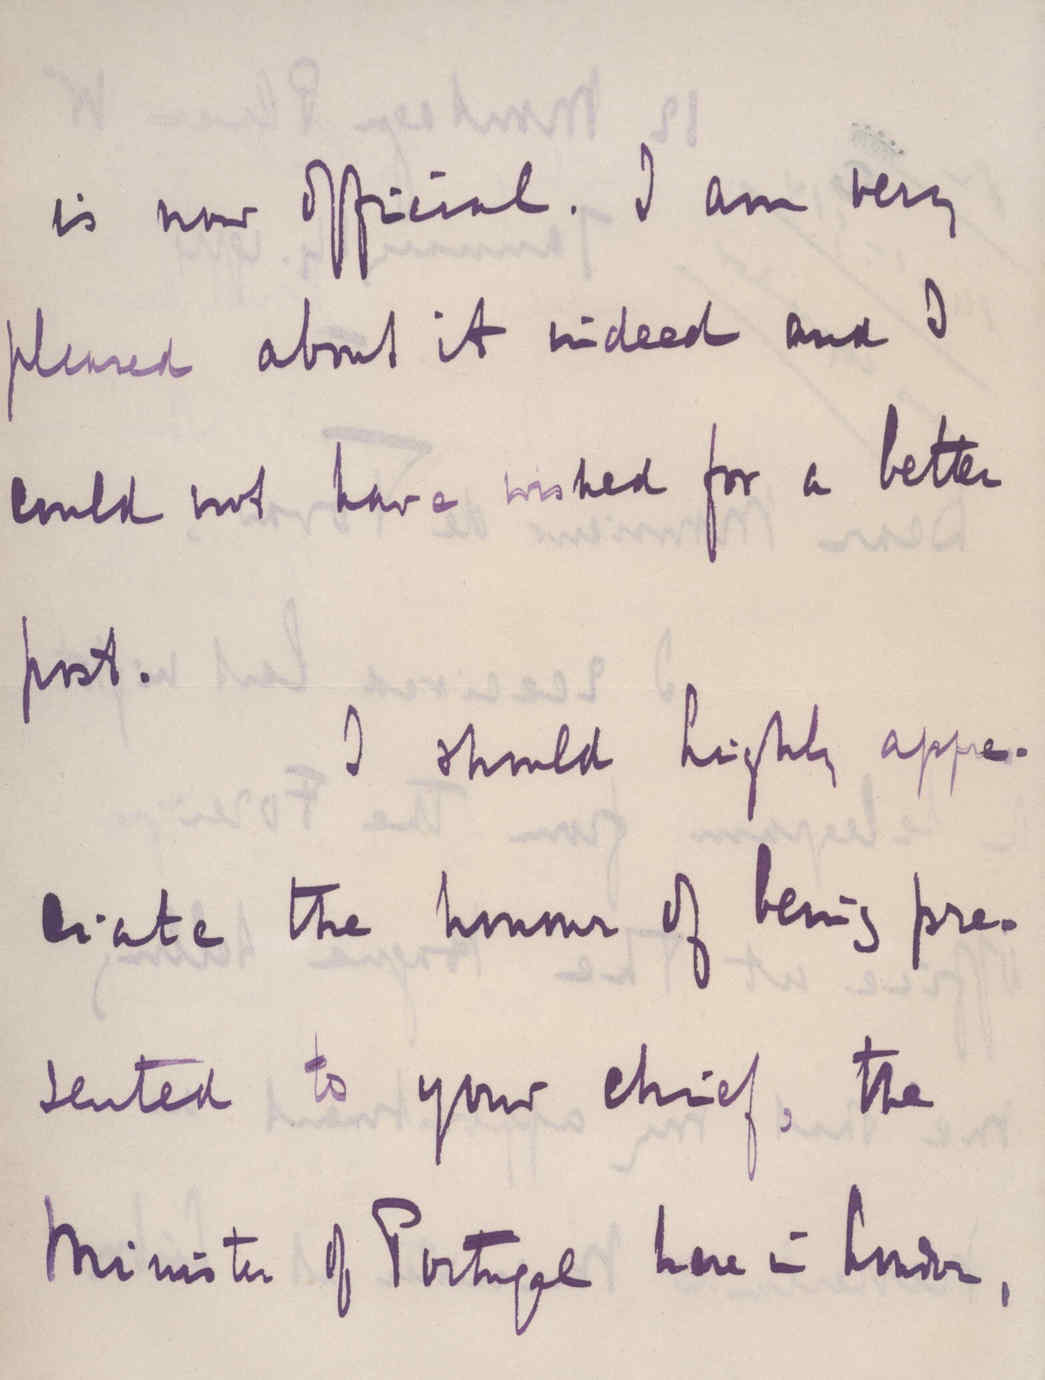 is now official. I am very
pleased about it indeed and I
could not have wished for a better
post.
I should highly appre-
ciate the honour of being pre-
sented to your chief, the
Minister of Portugal here in London,